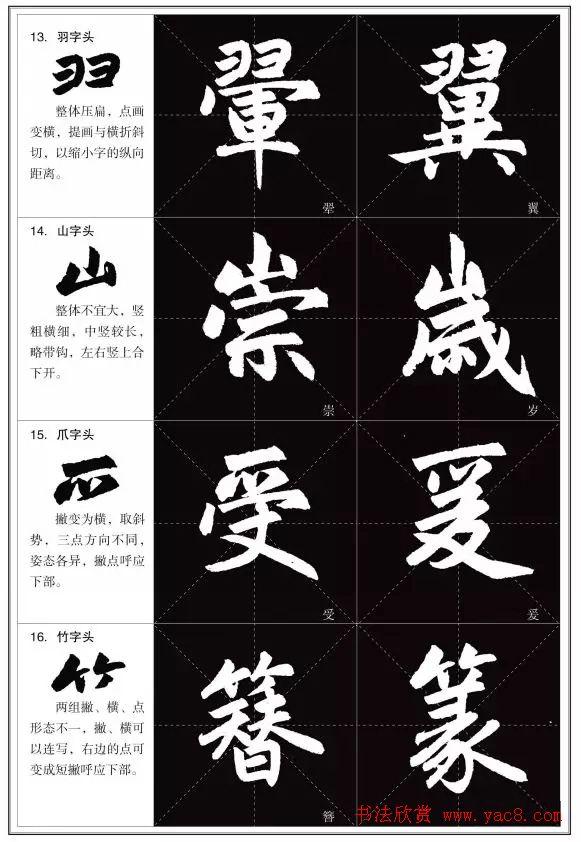 13. 羽字头
羽
整体压扁，点画
变横，提画与横折斜
切，以缩小字的纵向
距离。
翬
翚
翼
翼
14. 山字头
山
整体不宜大，竖
粗横细，中竖较长，
略带钩，左右竖上合
下开。
崇
崇
歲
岁
15. 爪字头
爫
撇变为横，取斜
势，三点方向不同，
姿态各异，撇点呼应
下部。
受
受
爰
爰
16. 竹字头
竹
两组撇、横、点
形态不一，撇、横可
以连写，右边的点可
变成短撇呼应下部。
簪
簪
篆
书法欣赏 www.yac8.com